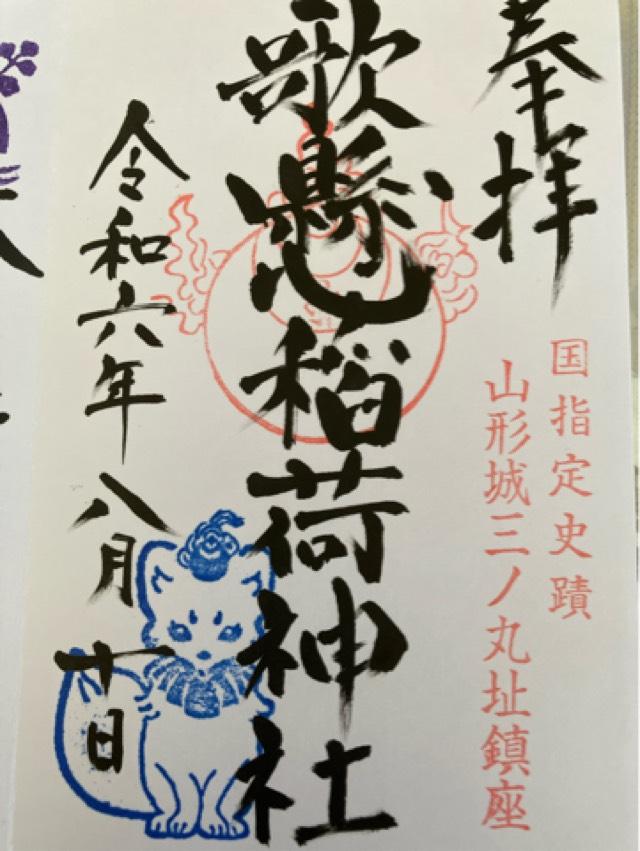 奉拝
国指定史蹟
山形城三ノ丸址鎮座
歌懸稲荷神社
令和六年八月十日